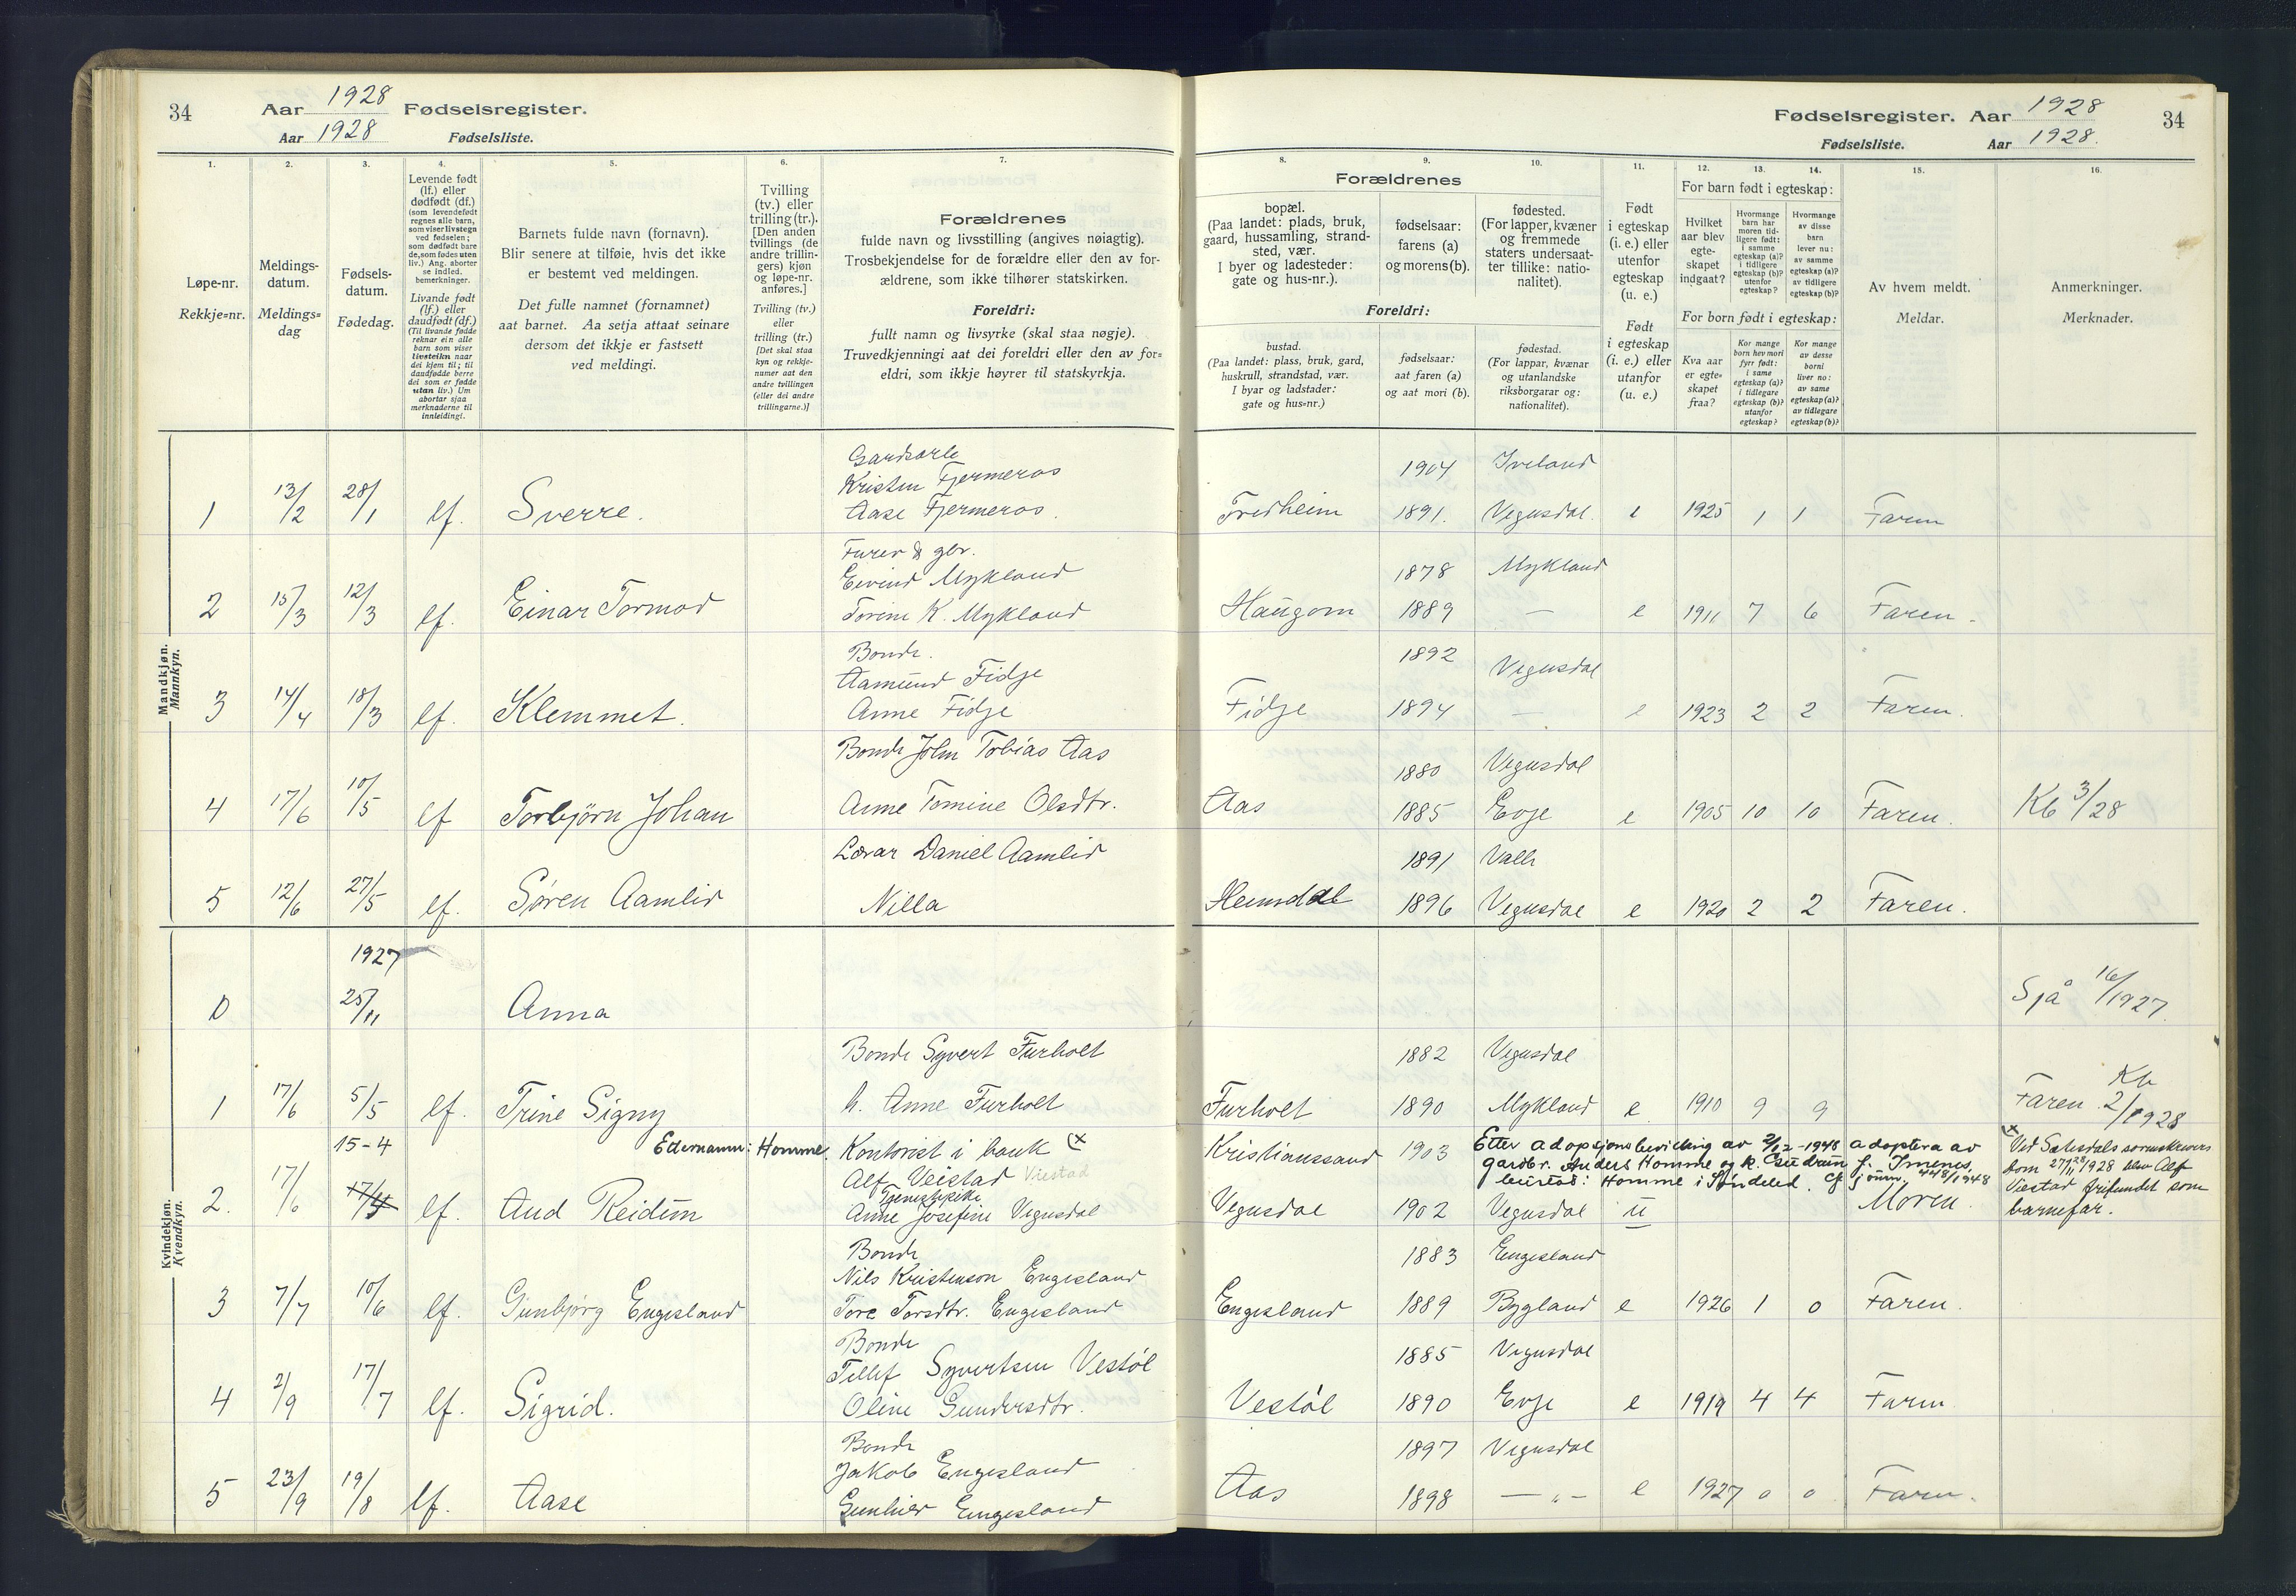 34 Aar 1928 Fødselsregister.
Aar 1928 Fødselsliste.
Fødselsregister. Aar 1928 34
Fødselsliste. Aar 1928.
1.
Løpe-nr.
Rekkje=nr.
2.
Meldings-
datum.
Meldings=
dag
3.
Fødsels-
datum.
Fødedag.
4.
Levende født
(lf.) eller
dødfødt (df.)
(som levendefødt
regnes alle barn,
som viser livstegn
ved fødselen;
som dødfødt bare
de, som fødes uten
liv.) Ang. aborter
se indled.
bemerkninger.
Livande født
(lf.) eller
daudfødt (df.)
(Til livande fødde
reknar ein alle
barn som viser
livsteikn naar
dei kjem til; til
daudfødde berre
dei som er fødde
utan liv.) Um
abortar sjaa
merknaderne til
innleidingi.
5.
Barnets fulde navn (fornavn).
Blir senere at tilføie, hvis det ikke
er bestemt ved meldingen.
Det fulle namnet (fornamnet)
aat barnet. Aa setja attaat seinare
dersom det ikkje er fastsett
ved meldingi.
6.
Tvilling
(tv.) eller
trilling (tr.).
[Den anden
tvillings (de
andre trillin-
gers) kjøn
og løpe-nr.
anføres.]
Tvilling (tv.)
eller
trilling (tr.)
[Det skal staa
kyn og rekkje-
numer aat den
andre tvillingen
(eller dei andre
trillingarne.)]
7.
Forældrenes
fulde navn og livsstilling (angives nøiagtig).
Trosbekjendelse for de forældre eller den av for-
ældrene, som ikke tilhører statskirken.
Foreldri:
fullt namn og livsyrke (skal staa nøgje).
Truvedkjenningi aat dei foreldri eller den av for=
eldri, som ikkje høyrer til statskyrkja.
Forældrenes
8.
bopæl.
(Paa landet: plads, bruk,
gaard, hussamling, strand-
sted, vær.
I byer og ladesteder:
gate og hus-nr.).
9.
fødselsaar:
farens (a)
og morens (b).
10.
fødested.
(For lapper, kvæner
og fremmede
staters undersaat-
ter tillike: natio-
nalitet).
Foreldri:
bustad.
(Paa landet: plass, bruk, gard,
huskrull, strandstad, vær.
I byar og ladstader:
gate og hus=nr.)
fødselsaar:
aat faren (a)
og aat mori (b).
fødestad.
(For lappar, kvænar
og utanlandske
riksborgarar og:
nationalitet).
11.
Født
i egteskap
(i. e.) eller
utenfor
egteskap
(u. e.)
Født
i egteskap
(i. e.) eller
utanfor
(u. e.)
12. 13. 14.
For barn født i egteskap:
Hvilket
aar blev
egte-
skapet
indgaat?
Hvormange
barn har
moren tid-
ligere født:
i samme
egteskap (a)?
i tidligere
egteskap (b)?
utenfor
egteskap?
Hvormange
av disse
barn
lever nu:
av samme
egteskap (a)?
av tidligere
egteskap (b)?
For born født i egteskap:
Kva aar
er egte-
skapet
fraa?
Kor mange
born hev mori
fyrr født:
i same
egteskap (a)?
i tidlegare
egteskap (b)?
utanfor
egteskap?
Kor mange
av desse
borni
liver no:
av same
egteskap (a)?
av tidlegare
egteskap (b)?
15.
Av hvem meldt.
Meldar.
16.
Anmerkninger.
Merknader.
Mandkjøn.
Mannkyn.
Kristen Fjermeros 1904 Iveland
1 13/2 28/1 lf. Sverre. Aase Fjermeros. Fredheim 1891. Vegusdal. e 1925 1 1 Faren
Eivind Mykland 1878 Mykland
2 15/3 12/3 lf. Einar Tormod Torine K. Mykland Haugom 1889 — e 1911 7 6 Faren.
Bonde.
Aamund Fidje 1892 Vegusdal
3 14/4 18/3 lf. Klemmet. Anne Fidje Fidje 1894 — e 1923 2 2 Faren.
Bonde John Tobias Aas 1880 Vegusdal
4 17/6 10/5 lf Torbjørn Johan Anne Tomine Olsdtr. Aas 1885 Evje e 1905 10 10 Faren. Kb 3/28
Lærar Daniel Aamlid 1891 Valle
5 12/6 27/5 lf. Søren Aamlid Nilla Heimdal 1896 Vegusdal e 1920 2 2 Faren.
Kvindekjøn.
Kvendkyn.
1927
0 25/11 Anna Sjå 16/1927.
Bonde Syvert Furholt 1882 Vegusdal
1 17/6 5/5 lf. Trine Signy h. Anne Furholt Furholt 1890 Mykland e 1910 9 9 Faren. Kb 2/1928
15-4 Etternamn: Homme. Kontorist i bank (x Kristianssand 1903
Alf Veistad Viestad
Tjenestepike
2. 17/6 17/4 lf. Aud Reidun Anne Josefine Vegusdal Vegusdal 1902 Vegusdal u Moren.
Etter adopsjonsbevilling av 2/12-1948 adoptera av
gardbr. Anders Homme og k. Gudrun f. Imenes,
bustad: Homme i Søndeled. Cf journ. 448/1948
x) Ved Sætesdals sorenskrivers
dom 27/11 1928 blev Alf
Viestad frifundet som
barnefar.
Bonde
Nils Kristenson Engesland 1883 Engesland
3 7/7 10/6 lf. Gunbjørg Engesland Tore Torsdtr. Engesland Engesland 1889 Bygland e 1926 1 0 Faren.
Bonde
Tellef Syvertsen Vestøl 1885 Vegusdal
4 2/9 17/7 lf. Sigrid. Oline Gundersdtr. Vestøl 1890 Evje e 1919 4 4 Faren
Bonde
Jakob Engesland 1897 Vegusdal
5 23/9 19/8 lf. Aase Gunhild Engesland Aas 1898 — " — e 1927 0 0 Faren.